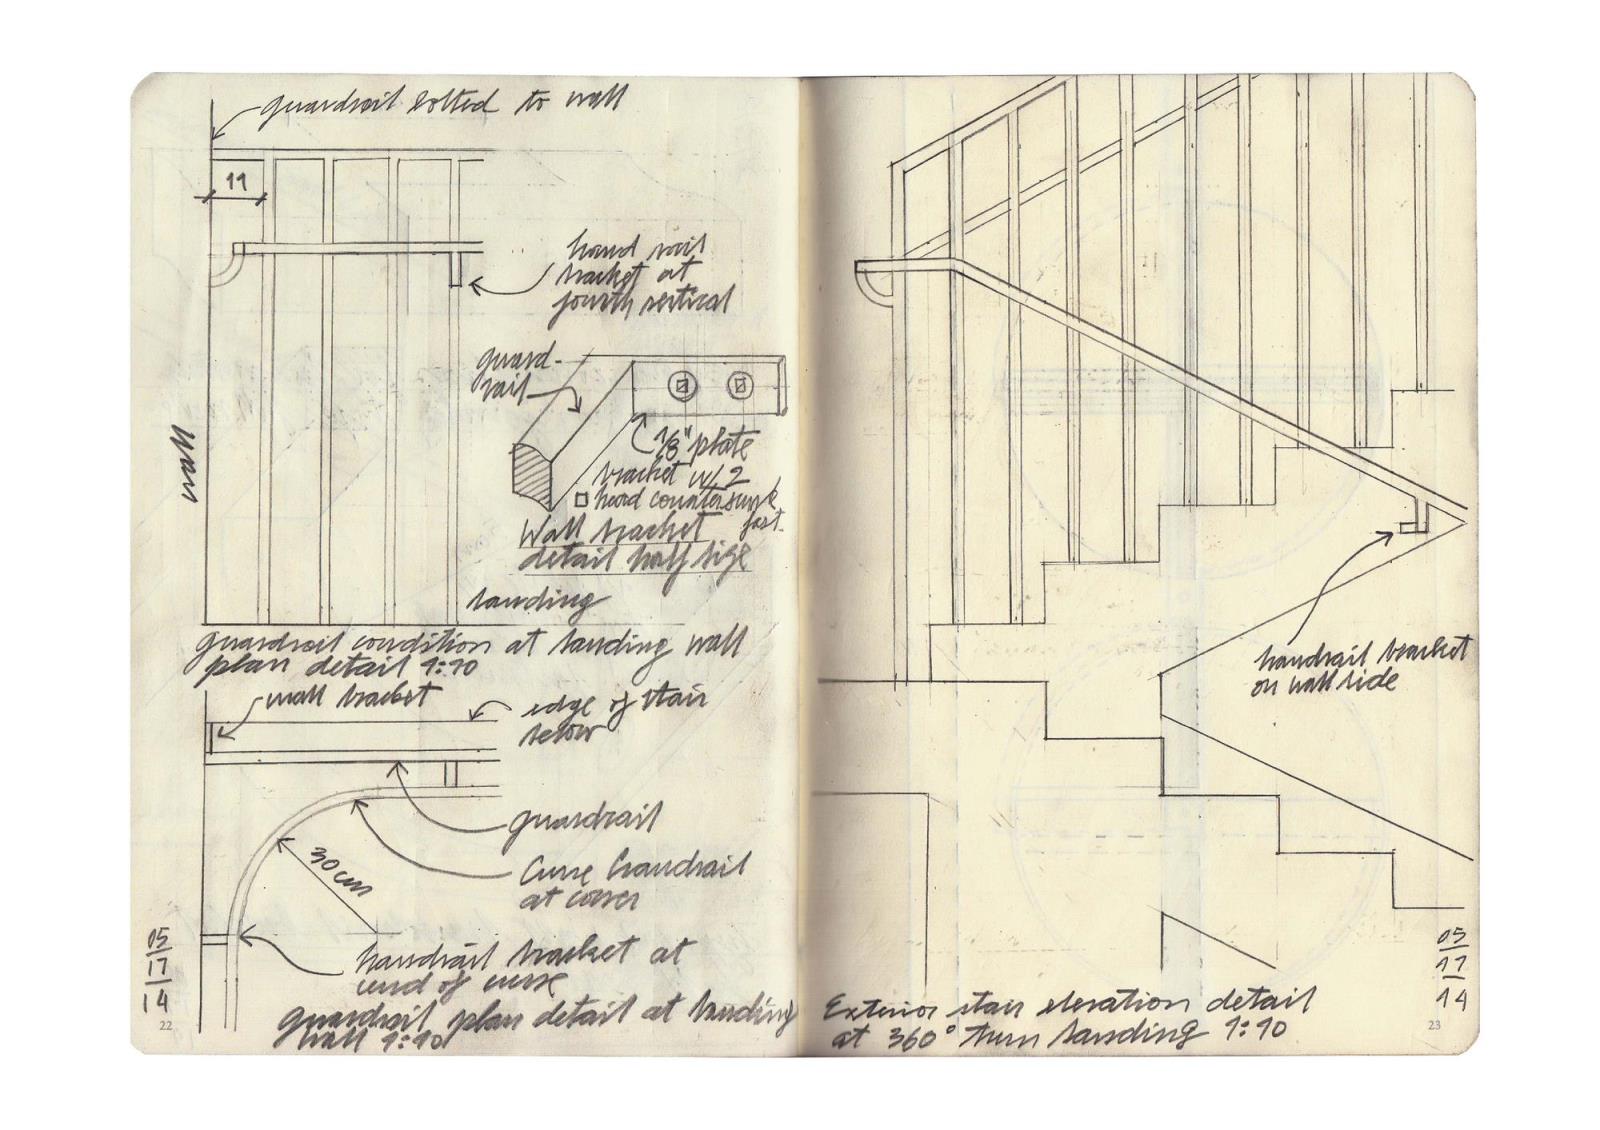 guardrail bolted to wall
11
hand rail
bracket at
fourth vertical
guard-
rail
1/8" plate
bracket w/ 2
□ head countersunk
fast.
Wall bracket
detail half size
wall
landing
guardrail condition at landing wall
plan detail 1:10
wall bracket
edge of stair
below
guardrail
30 cm
Curve handrail
at corner
handrail bracket at
end of curve
guardrail plan detail at landing
wall 1:10
05
17
14
22
handrail bracket
on wall side
Exterior stair elevation detail
at 360° turn landing 1:10
05
17
14
23